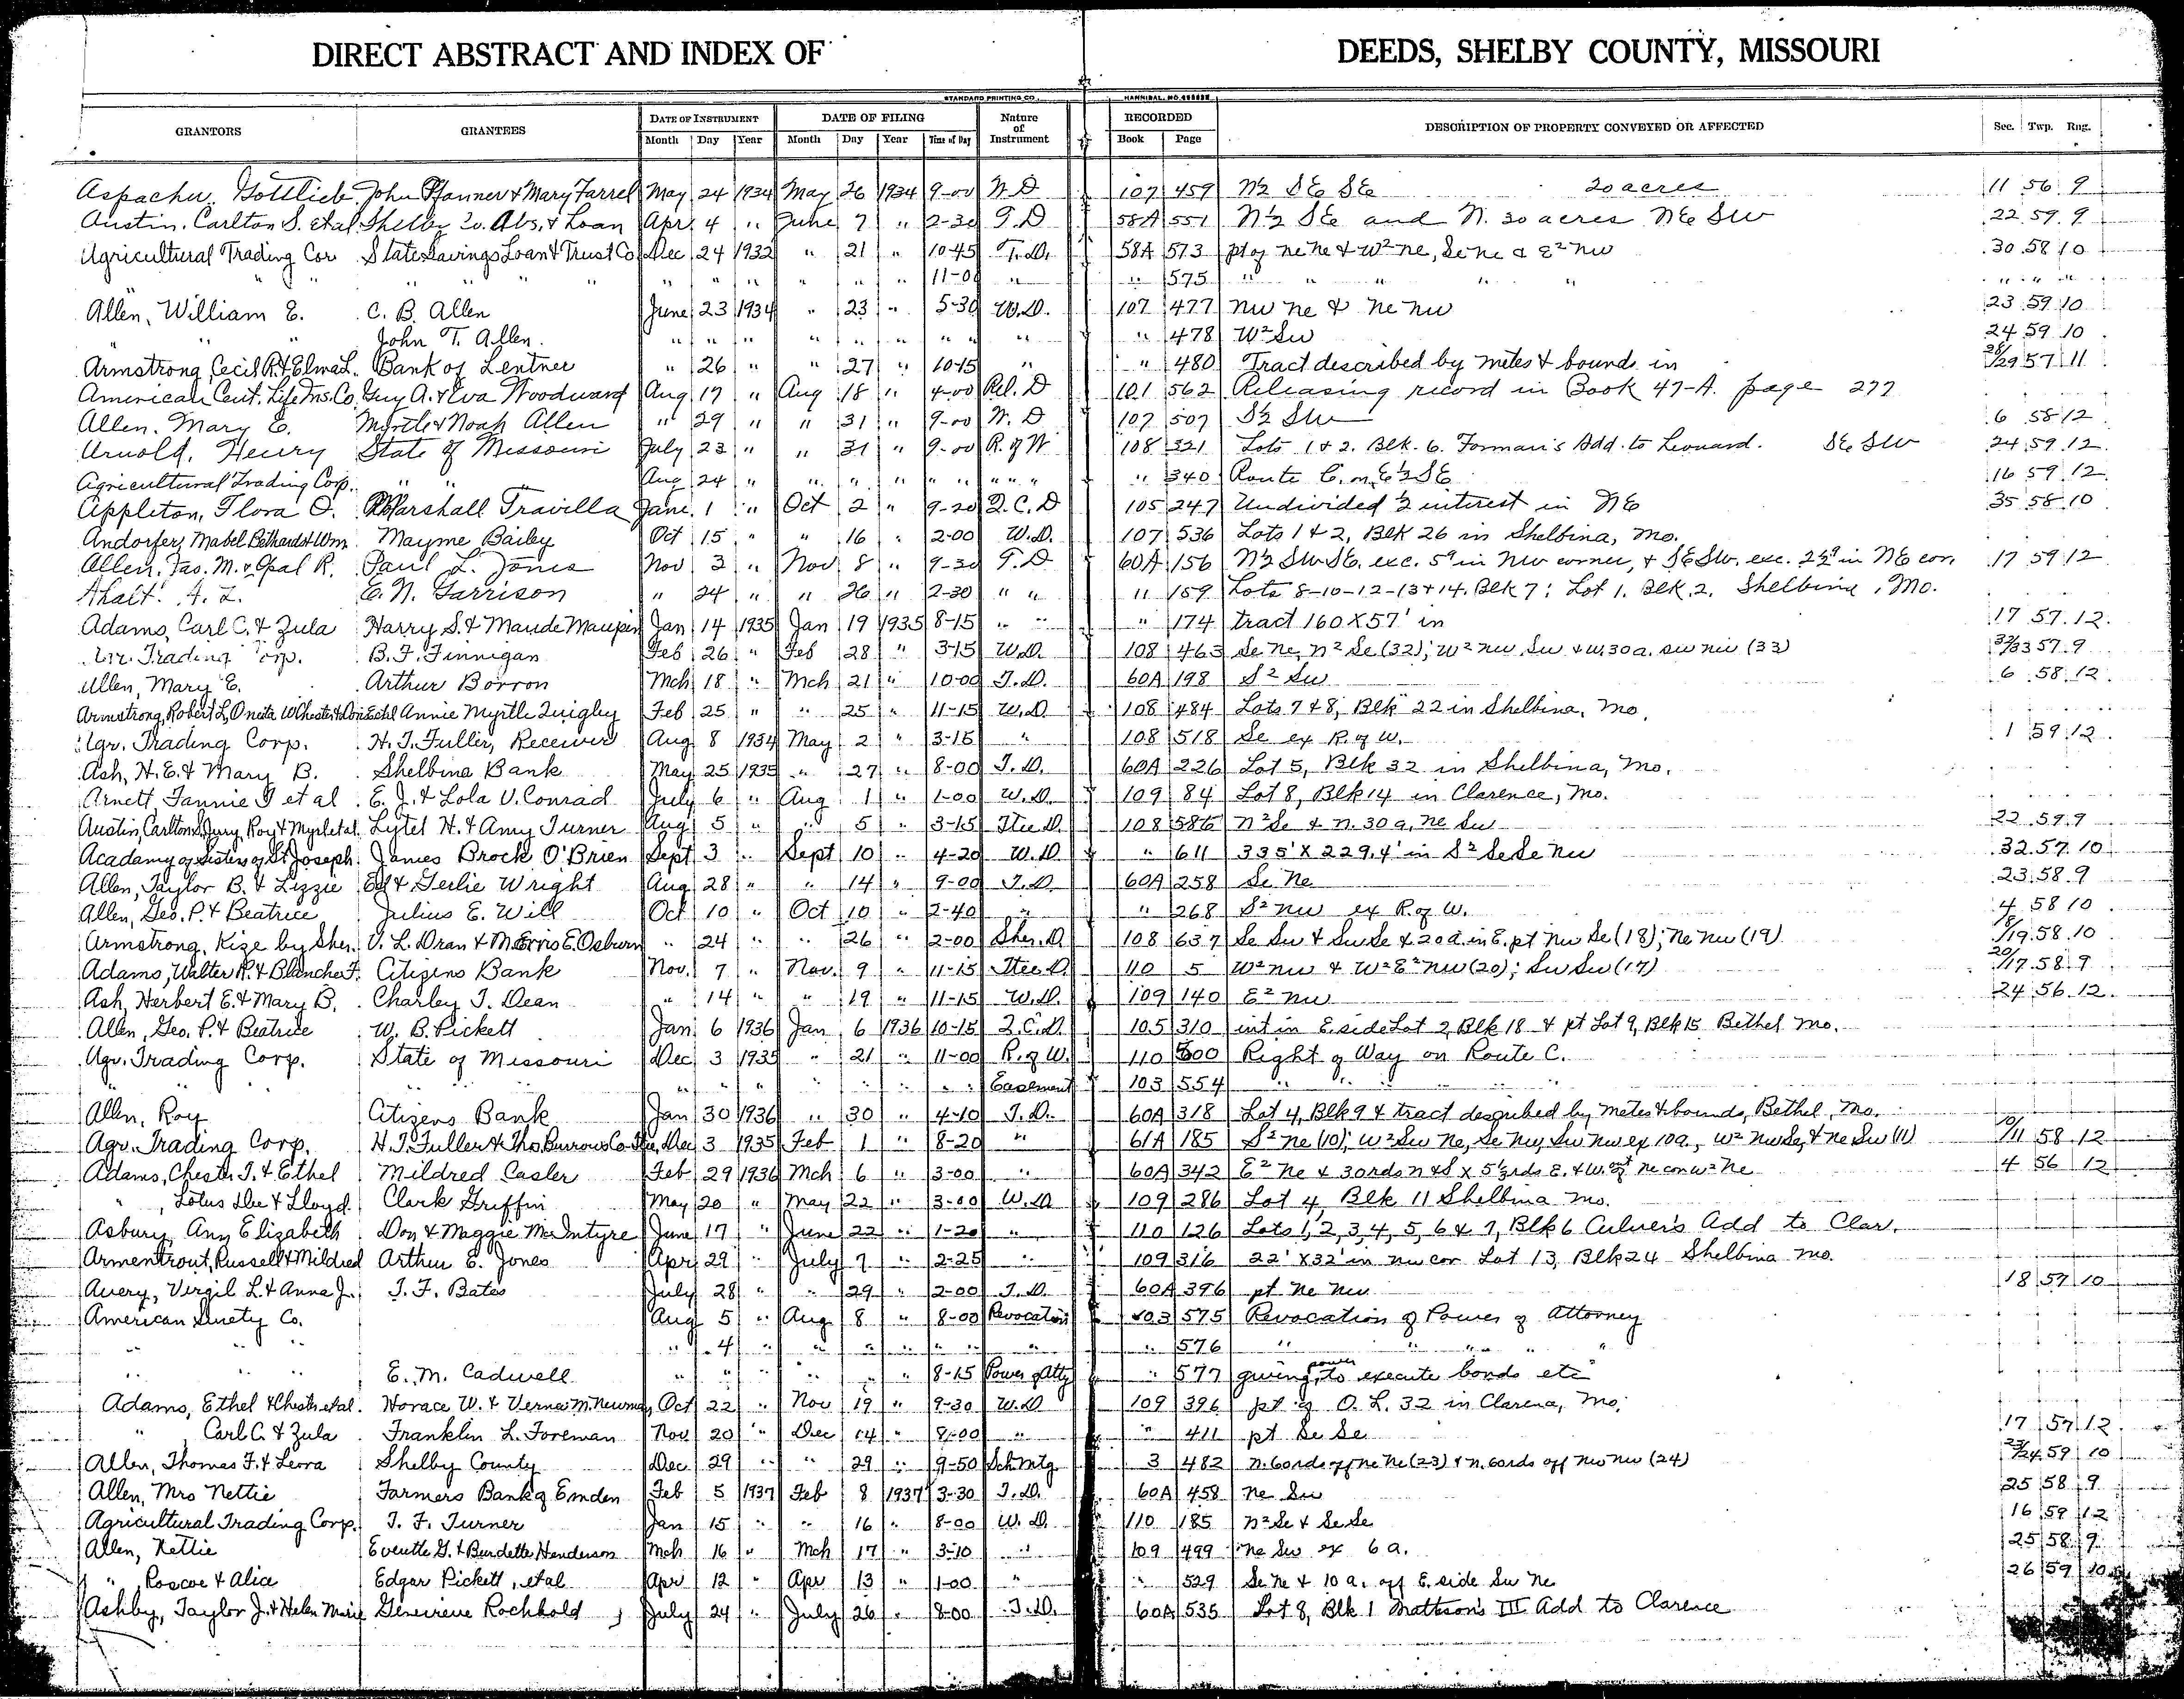 DIRECT ABSTRACT AND INDEX OF DEEDS, SHELBY COUNTY, MISSOURI
STANDARD PRINTING CO. HANNIBAL, MO.
GRANTORS GRANTEES DATE OF INSTRUMENT DATE OF FILING Nature of Instrument RECORDED DESCRIPTION OF PROPERTY CONVEYED OR AFFECTED Sec. Twp. Rng.
Month Day Year Month Day Year Time of Day Book Page
Aspacher, Gottlieb John Pfanner & Mary Farrel May 24 1934 May 26 1934 9-00 W. D 107 459 N½ SE SE 20 acres 11 56 9
Austin, Carlton S. etal Shelby Co. Abs. & Loan Apr. 4 " June 7 " 2-30 T. D 58A 551 N½ SE and N. 30 acres NE SW 22 59 9
Agricultural Trading Cor State Savings Loan & Trust Co Dec 24 1932 " 21 " 10-45 T. D. 58A 573 pt of ne ne & W² ne, Se ne & E² nw 30 58 10
" " " " " " " " " " 11-00 " " 575 " " " " " " "
Allen, William E. C. B. Allen June 23 1934 " 23 " 5-30 W.D. 107 477 nw ne & ne nw 23 59 10
" " John T. Allen " " " " " " " " " 478 W² Sw 24 59 10
Armstrong, Cecil R. & Elma L. Bank of Lentner " 26 " " 27 " 10-15 " " 480 Tract described by metes & bounds in 28/29 57 11
American Cent. Life Ins. Co. Guy A. & Eva Woodward Aug 17 " Aug 18 " 4-00 Rel. D 101 562 Releasing record in Book 47-A. page 277
Allen, Mary E. Myrtle & Noah Allen " 29 " " 31 " 9-00 W. D 107 507 S½ SW 6 58 12
Arnold, Henry State of Missouri July 23 " " 31 " 9-00 R. of W 108 321 Lots 1 & 2. Blk. 6. Forman's Add. to Leonard. SE SW 24 59 12
Agricultural Trading Corp. " " Aug 24 " " " " " " " " " 340 Route C. on E½ SE 16 59 12
Appleton, Flora O. Marshall Travilla Jan. 1 " Oct 2 " 9-20 Q. C. D 105 247 Undivided ½ interest in NE 35 58 10
Andorfer, Mabel Bethards & Wm Mayme Bailey Oct 15 " " 16 " 2-00 W.D. 107 536 Lots 1 & 2, Blk 26 in Shelbina, Mo.
Allen, Jas. M. & Opal R. Paul L. Jones Nov 3 " Nov 8 " 9-30 T. D 60A 156 N½ SW SE. exc. 5ᵃ in NW corner, & SE SW. exc. 2½ᵃ in NE cor. 17 59 12
Ahalt. A. Z. E. N. Garrison " 24 " " 26 " 2-30 " " " 159 Lots 8-10-12-13 & 14. Blk 7; Lot 1. Blk. 2. Shelbina, Mo.
Adams, Carl C. & Zula Harry S. & Maude Maupin Jan 14 1935 Jan 19 1935 8-15 " " " 174 tract 160 X 57' in 17 57 12
Agr. Trading Corp. B. F. Finnigan Feb 26 " Feb 28 " 3-15 W.D. 108 463 Se Ne, n² Se (32); W² nw, Sw & W. 30 a. sw nw (33) 32/33 57 9
Allen, Mary E. Arthur Borron Mch 18 " Mch 21 " 10-00 T. D. 60A 198 S² Sw 6 58 12
Armstrong, Robert L, Oneita W Chester & Annie Myrtle Quigley Feb 25 " " 25 " 11-15 W.D. 108 484 Lots 7 & 8, Blk 22 in Shelbina, Mo.
Agr. Trading Corp. H. T. Fuller, Receiver Aug 8 1934 May 2 " 3-15 " 108 518 Se ex R. of W. 1 59 12
Ash, H. E. & Mary B. Shelbina Bank May 25 1935 " 27 " 8-00 T. D. 60A 226 Lot 5, Blk 32 in Shelbina, Mo.
Arnett, Fannie G et al E. J. & Lola V. Conrad July 6 " Aug 1 " 1-00 W. D. 109 84 Lot 8, Blk 14 in Clarence, Mo.
Austin, Carlton S, Jury, Roy & Myrl etal Lytel H. & Amy Turner Aug 5 " " 5 " 3-15 Ttee D. 108 586 n² Se & n. 30 a, ne Sw 22 59 9
Acadamy of Sisters of St Joseph James Brock O'Brien Sept 3 " Sept 10 " 4-20 W. D " 611 335' X 229.4' in S² Se Se nw 32 57 10
Allen, Taylor B. & Lizzie Ed & Leslie Wright Aug 28 " " 14 " 9-00 T. D. 60A 258 Se Ne 23 58 9
Allen, Geo. P. & Beatrice Julius E. Will Oct 10 " Oct 10 " 2-40 " " 268 S² nw ex R. of W. 4 58 10
Armstrong, Kize by Sher. V. L. Drain & Morris E. Osburn " 24 " " 26 " 2-00 Sher. D 108 637 Se Sw & Sw Se & 20 a. in E. pt nw Se (18); Ne nw (19) 18/19 58 10
Adams, Walter R. & Blanche F. Citizens Bank Nov. 7 " Nov. 9 " 11-15 Ttee D 110 5 W² nw & W² E² nw (20); Sw Sw (17) 20/17 58 9
Ash, Herbert E. & Mary B. Charley T. Dean " 14 " " 19 " 11-15 W.D. 109 140 E² nw 24 56 12
Allen, Geo. P. & Beatrice W. B. Pickett Jan 6 1936 Jan 6 1936 10-15 Q.C.D. 105 310 int in E. side Lot 2, Blk 18 & pt Lot 9, Blk 15 Bethel Mo.
Agr. Trading Corp. State of Missouri Dec 3 1935 " 21 " 11-00 R. of W. 110 600 Right of Way on Route C.
" " " " " " " " " Easement 103 554 " " "
Allen, Roy Citizens Bank Jan 30 1936 " 30 " 4-10 T. D. 60A 318 Lot 4, Blk 9 & tract described by metes & bounds, Bethel, Mo.
Agr. Trading Corp. H. T. Fuller & Tho Burrows Co Dec 3 1935 Feb 1 " 8-20 " 61A 185 S² ne (10); W² Sw Ne, Se nw, Sw nw ex 10a., W² nw Se, & ne Sw (11) 10/11 58 12
Adams, Chester T. & Ethel Mildred Casler Feb 29 1936 Mch 6 " 3-00 " 60A 342 E² Ne & 30 rds n & S X 5⅓ rds E. & W. ne cor w² ne 4 56 12
" , Lotus Dee & Lloyd Clark Griffin May 20 " May 22 " 3-00 W. D 109 286 Lot 4, Blk 11 Shelbina Mo.
Asbury, Ann Elizabeth Don & Maggie McIntyre June 17 " June 22 " 1-20 " 110 126 Lots 1, 2, 3, 4, 5, 6 & 7, Blk 6 Culver's Add to Clar.
Armentrout, Russell & Mildred Arthur E. Jones Apr 29 " July 7 " 2-25 " 109 316 22' X 32' in nw cor Lot 13, Blk 24 Shelbina Mo.
Avery, Virgil L. & Anna J. T. F. Bates July 28 " " 29 " 2-00 T. D. 60A 396 pt Ne nw 18 57 10
American Surety Co. Aug 5 " Aug 8 " 8-00 Revocation 103 575 Revocation of Power of Attorney
" " " 4 " " " " " " 576 " " "
" " E. M. Cadwell " " " " " " 8-15 Power of Atty " 577 giving power to execute bonds etc
Adams, Ethel & Chester etal. Horace W. & Verna M. Newman Oct 22 " Nov 19 " 9-30 W.D 109 396 pt of O. L. 32 in Clarence, Mo.
" Carl C. & Zula Franklin L. Foreman Nov 20 " Dec 14 " 8-00 " " 411 pt Se Se 17 57 12
Allen, Thomas F. & Leora Shelby County Dec 29 " " 29 " 9-50 Sch Mtg 3 482 n. 60 rds off ne ne (23) & n. 60 rds off nw nw (24) 23/24 59 10
Allen, Mrs Nettie Farmers Bank of Emden Feb 5 1937 Feb 8 1937 3-30 T. D. 60A 458 ne Sw 25 58 9
Agricultural Trading Corp. T. F. Turner Jan 15 " " 16 " 8-00 W. D. 110 185 n² Se & Se Se 16 59 12
Allen, Nettie Everette G. & Burdette Henderson Mch 16 " Mch 17 " 3-10 " 109 499 ne Sw ex 6 a. 25 58 9
" , Roscoe & Alia Edgar Pickett, etal Apr 12 " Apr 13 " 1-00 " " 529 Se ne & 10 a. off E. side Sw ne 26 59 10
Ashby, Taylor J. & Helen Marie Genevieve Rochhold July 24 " July 26 " 8-00 T.D. 60A 535 Lot 8, Blk 1 Mattson's III Add to Clarence